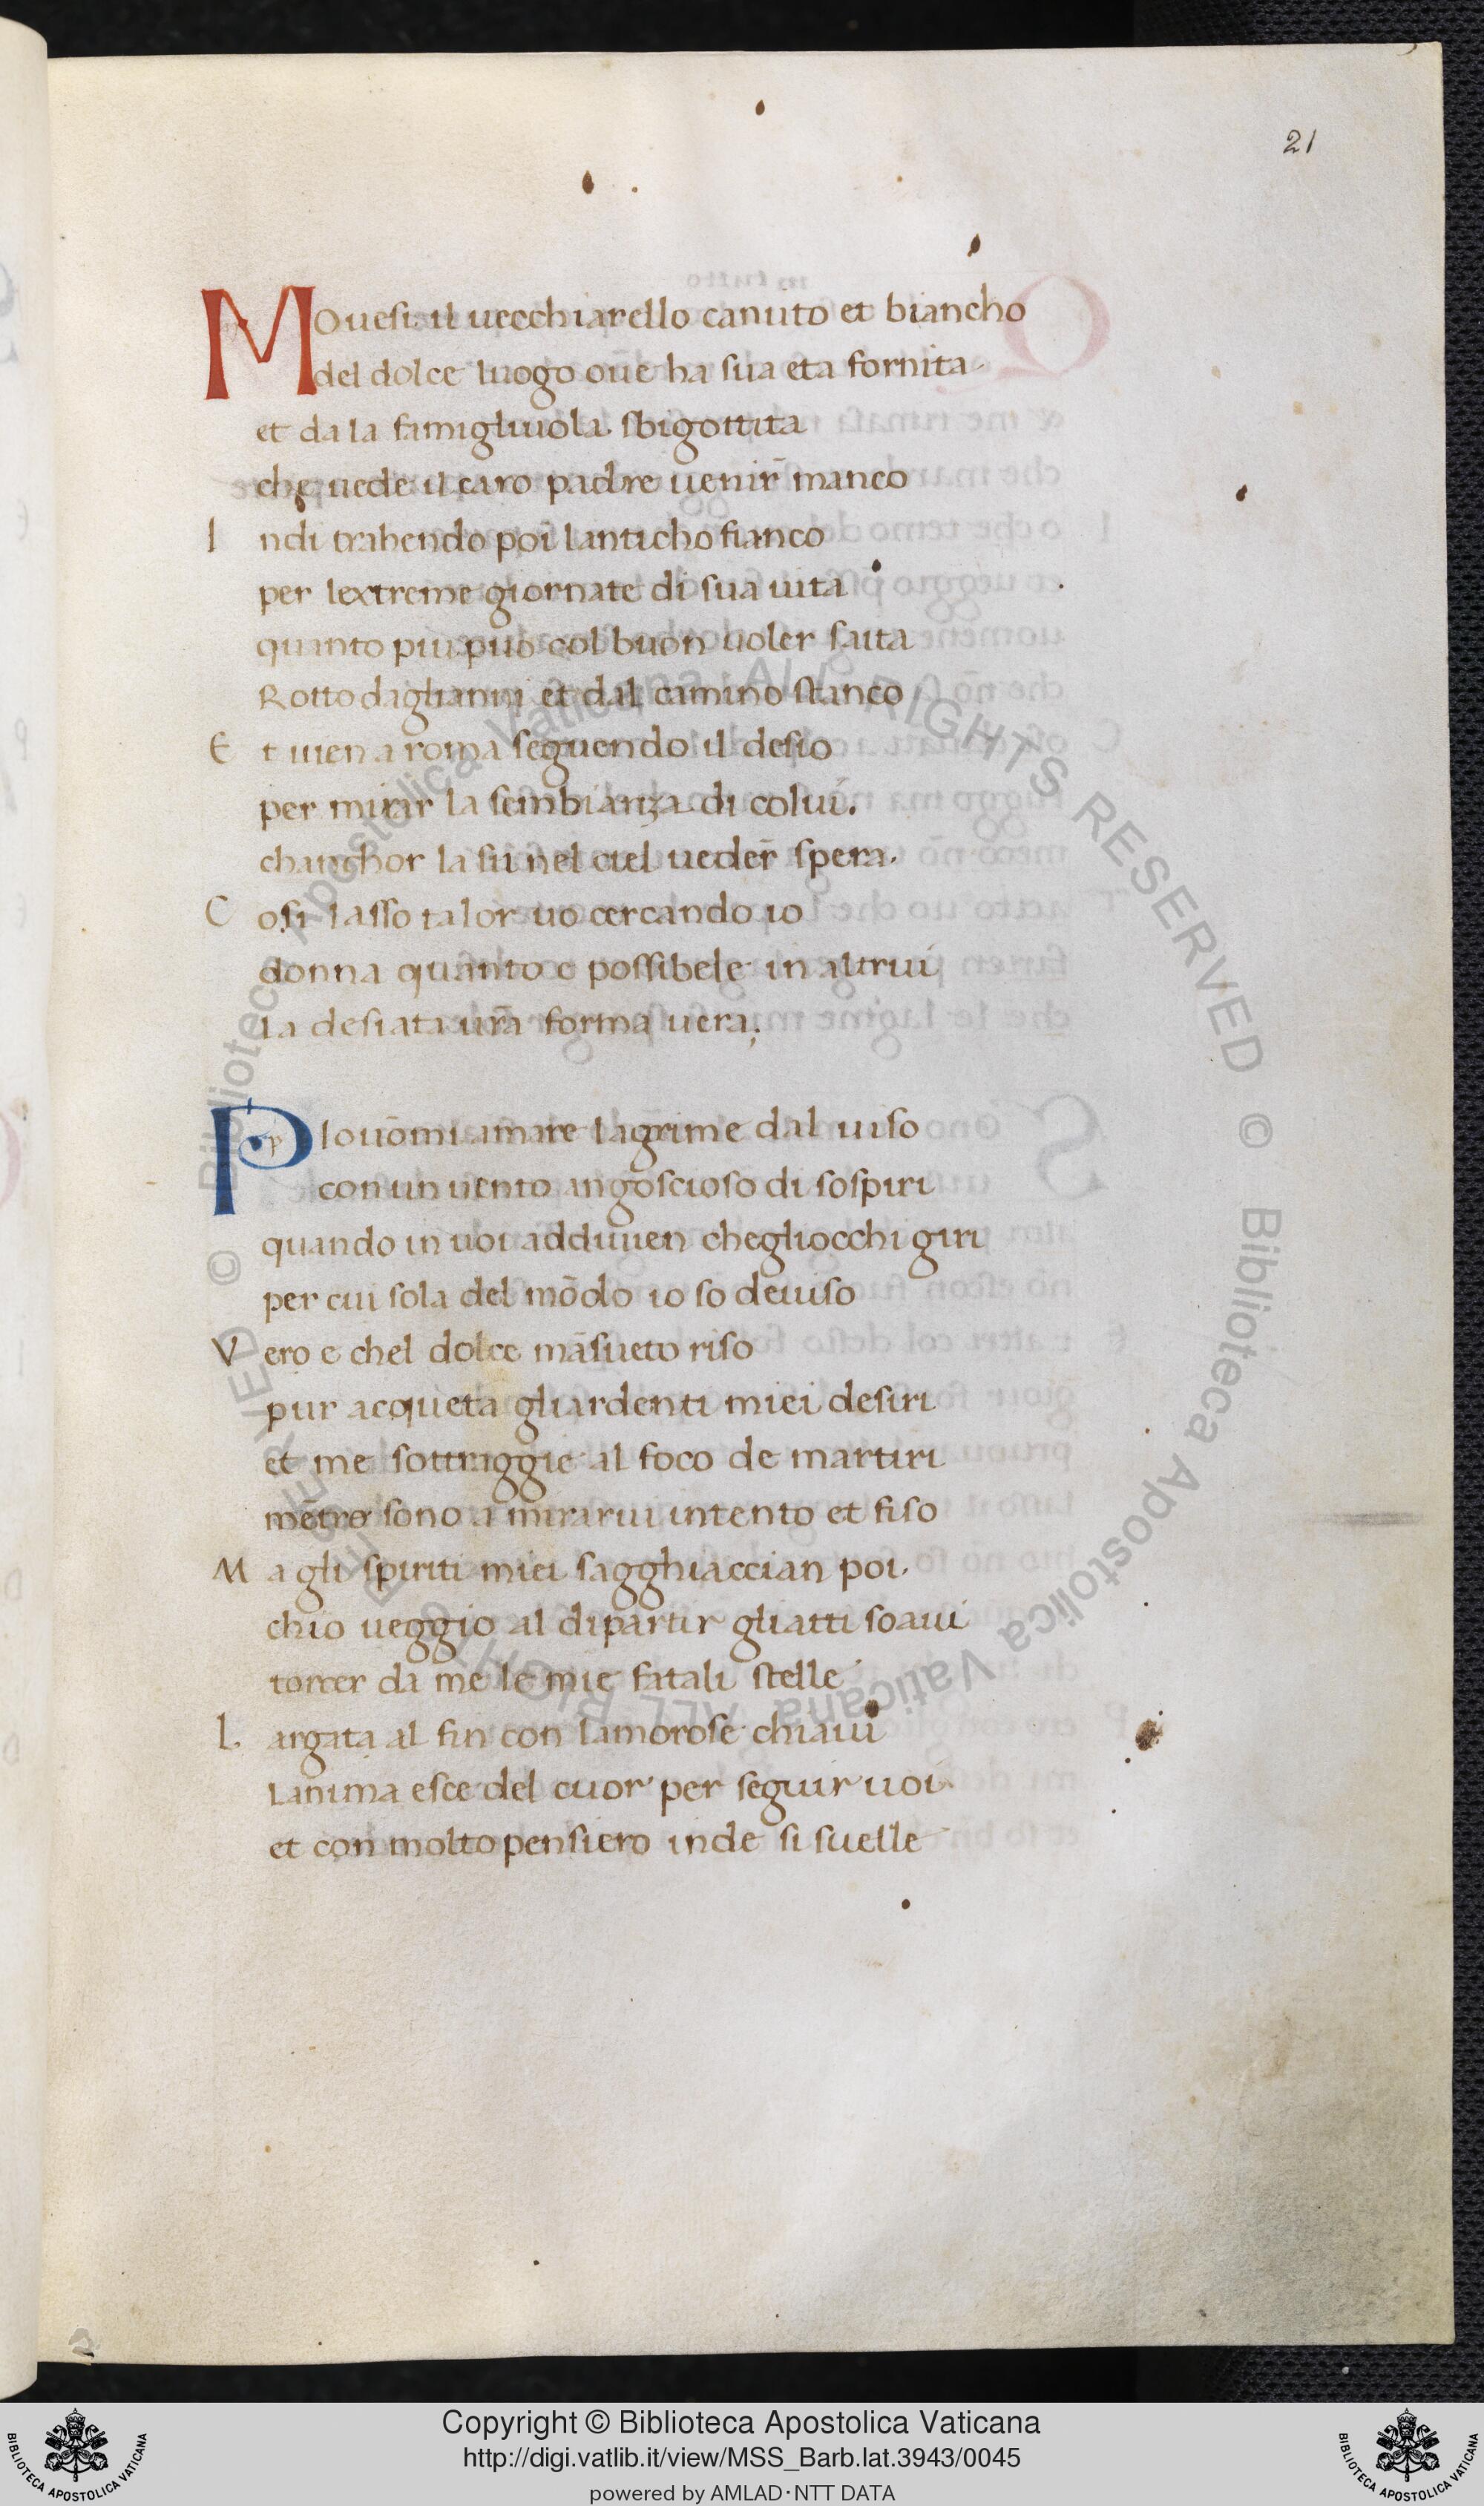 21
MOuesi il uecchiarello canuto et biancho
del dolce luogo oue ha sua eta fornita
et da la famigliuola sbigottita
che uede il caro padre uenir̄ manco
Indi trahendo poi lanticho fianco
per lextreme giornate di sua uita
quanto piu puo col buon uoler saita
Rotto daglianni et dal camino stanco
Et uien a roma seguendo il desio
per mirar la sembianza di colui.
chanchor la su nel ciel ueder̄ spera.
Cosi lasso talor uo cercando io
donna quanto e possibele in altrui
La desiata ur̄a forma uera;
PIouōmi amare lagrime dal uiso
con un uento angoscioso di sospiri
quando in uoi adduuen chegliocchi giri
per cui sola del mōdo io so deuiso
Vero e chel dolce māsueto riso
pur acqueta gliardenti miei desiri
et me sottraggie al foco de martiri
mētro sono a mirarui intento et fiso
Ma gli spiriti miei sagghiaccian poi.
chio ueggio al dipartir gliatti soaui
torcer da me le mie fatali stelle
Largata al fin con lamorose chiaui
Lanima esce del cuor per seguir uoi.
et con molto pensiero inde si suelle
© Biblioteca Apostolica Vaticana ALL RIGHTS RESERVED © Biblioteca Apostolica Vaticana ALL RIGHTS RESERVED
Copyright © Biblioteca Apostolica Vaticana
http://digi.vatlib.it/view/MSS_Barb.lat.3943/0045
powered by AMLAD·NTT DATA
BIBLIOTECA APOSTOLICA VATICANA
BIBLIOTECA APOSTOLICA VATICANA